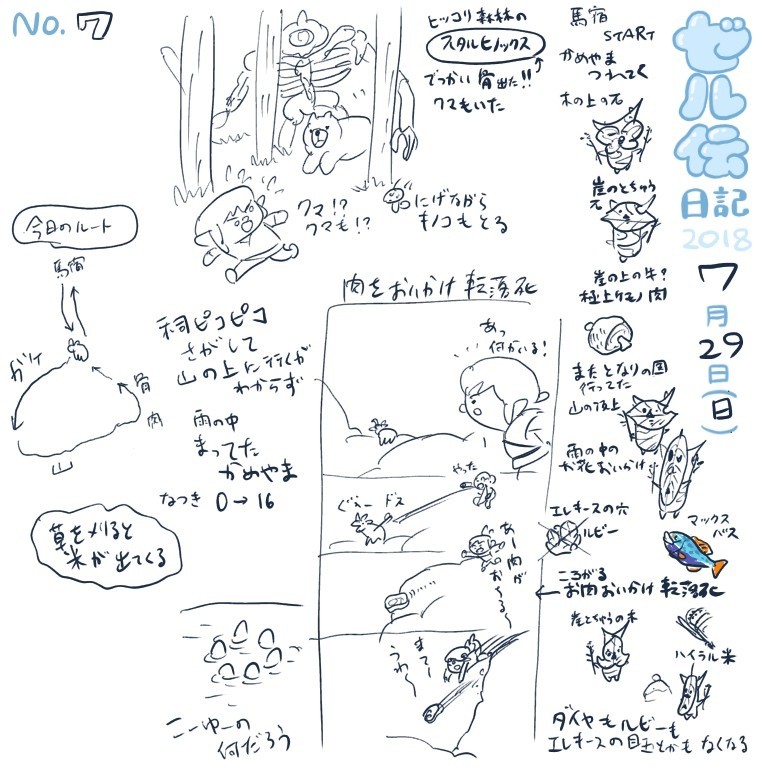 No. 7
ゼル伝
日記
2018
7月29日(日)
馬宿
START
かめやま
つれてく
木の上の元
崖のとちゅう
元
崖の上の牛?
極上ケモノ肉
またとなりの国
行ってた
山の頂上
雨の中の
お花おいかけ
エレキースの穴
ルビー
マックス
バス
ころがる
お肉おいかけ転落死
崖とちゅうの木
ハイラル米
ダイヤもルビーも
エレキースの目玉とかもなくなる
ヒッコリ森林の
スタルヒノックス
でっかい骨出た!!
クマもいた
クマ!?
クマも!?
にげながら
キノコもとる
今日のルート
馬宿
ガケ
骨
肉
山
祠ピコピコ
さがして
山の上に行くが
わからず
雨の中
まってた
かめやま
なつき 0→16
草を刈ると
米が出てくる
こーゆーの
何だろう
肉をおいかけ転落死
あっ
何かいる!
やった
ぐえー ドス
あー肉が
おちる〜
まてー
うわ〜